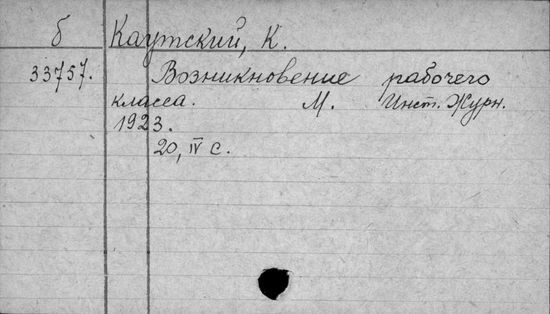 б Каутский, К.
33757. Возникновение рабочего
класса. М. Инст. Журн.
1923.
20, IV с.